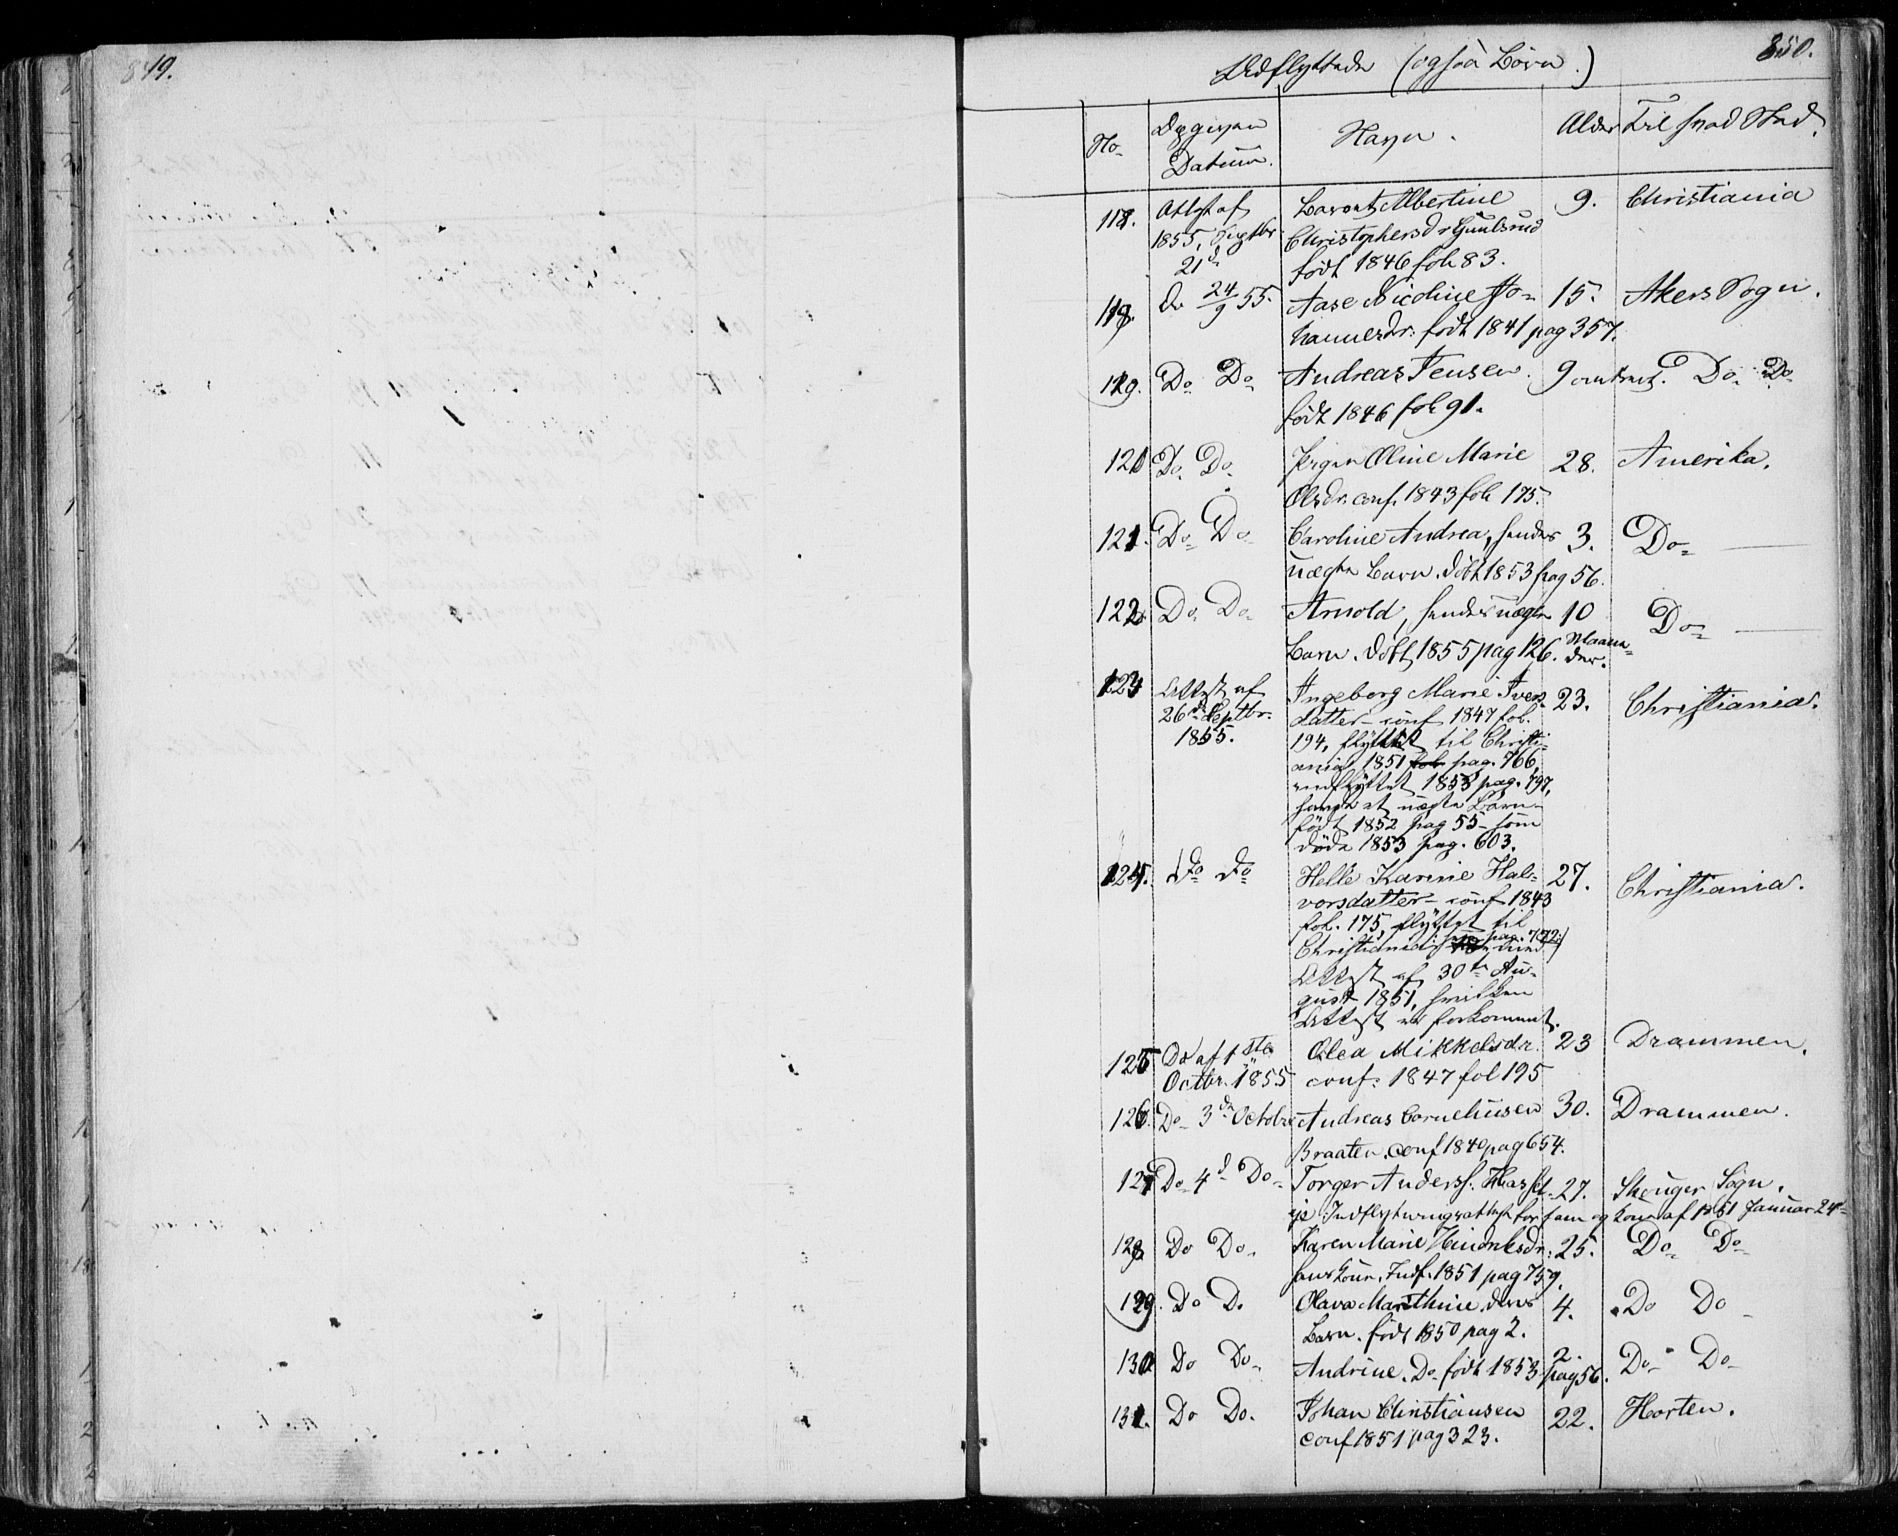 849.
850.
Udflyttede (ogsaa Børn.)
No Dag og Datum. Navn. Alder Til hvad Sted.
118. Attest af Berent Albertine 9. Christiania
1855, Septbr. Christophersdr
21d født 1846 fol 83.
do 24/9 55. Aase Nicoline Jo- 15. Akers Sogn.
hannesdr: født 1841 pag 357.
Do Do Andreas Jensen. 9 Do Do
født 1846 fol 91.
Do. Do. Jørgen Oline Marie 28. Amerika.
Olsdr. conf. 1843 fol 175.
121. Do Do Caroline Andrea, hendes 3. Do
uægte Barn. døbt 1853 pag 56.
122 Do. Do Arnold, hendes uægte 10 Do
Barn. døbt 1855 pag 126. Maane-
der.
123 Attest af Ingeborg Marie Ivers- 23. Christiania.
26d Septbr. datter - conf 1847 fol.
1855. 194, flyttet til Christi-
ania 1851 fol. pag. 766,
indflyttet 1853 pag. 797,
havde et uægte Barn
født 1852 pag 55 - som
døde 1853 pag. 603.
Do Do Helle Karine Hal- 27. Christiania.
vorsdatter - conf 1843
fol. 175, flyttet til
Christiania pag. 772.) med
Attest af 30te Au-
gust 1851, hvilken
Attest er forkommet.
125 Do af 1ste Olea Mikkelsdr. 23 Drammen.
Octbr. 1855 conf: 1847 fol 195
126. Do 3de Octobr Andreas Corneliusen 30. Drammen.
Braaten. conf 1840 pag 654.
127 Do 4d Do Torger Anderss: 27. Skouger Sogn.
Indflytningsattest for ham og Kone af 1851 Januar 24
128 Do Do. Karen Marie Hendriksdr: 25. Do Do
hans Kone. Indf. 1851 pag 759.
129. Do D. Olava Marthine deres 4. Do Do
Barn. født 1850 pag 2.
130 Do Do Andrine. Do født 1853 2. Do Do
pag 56.
131. Do Do. Johan Christiansen 22. Horten.
conf 1851 pag 323.